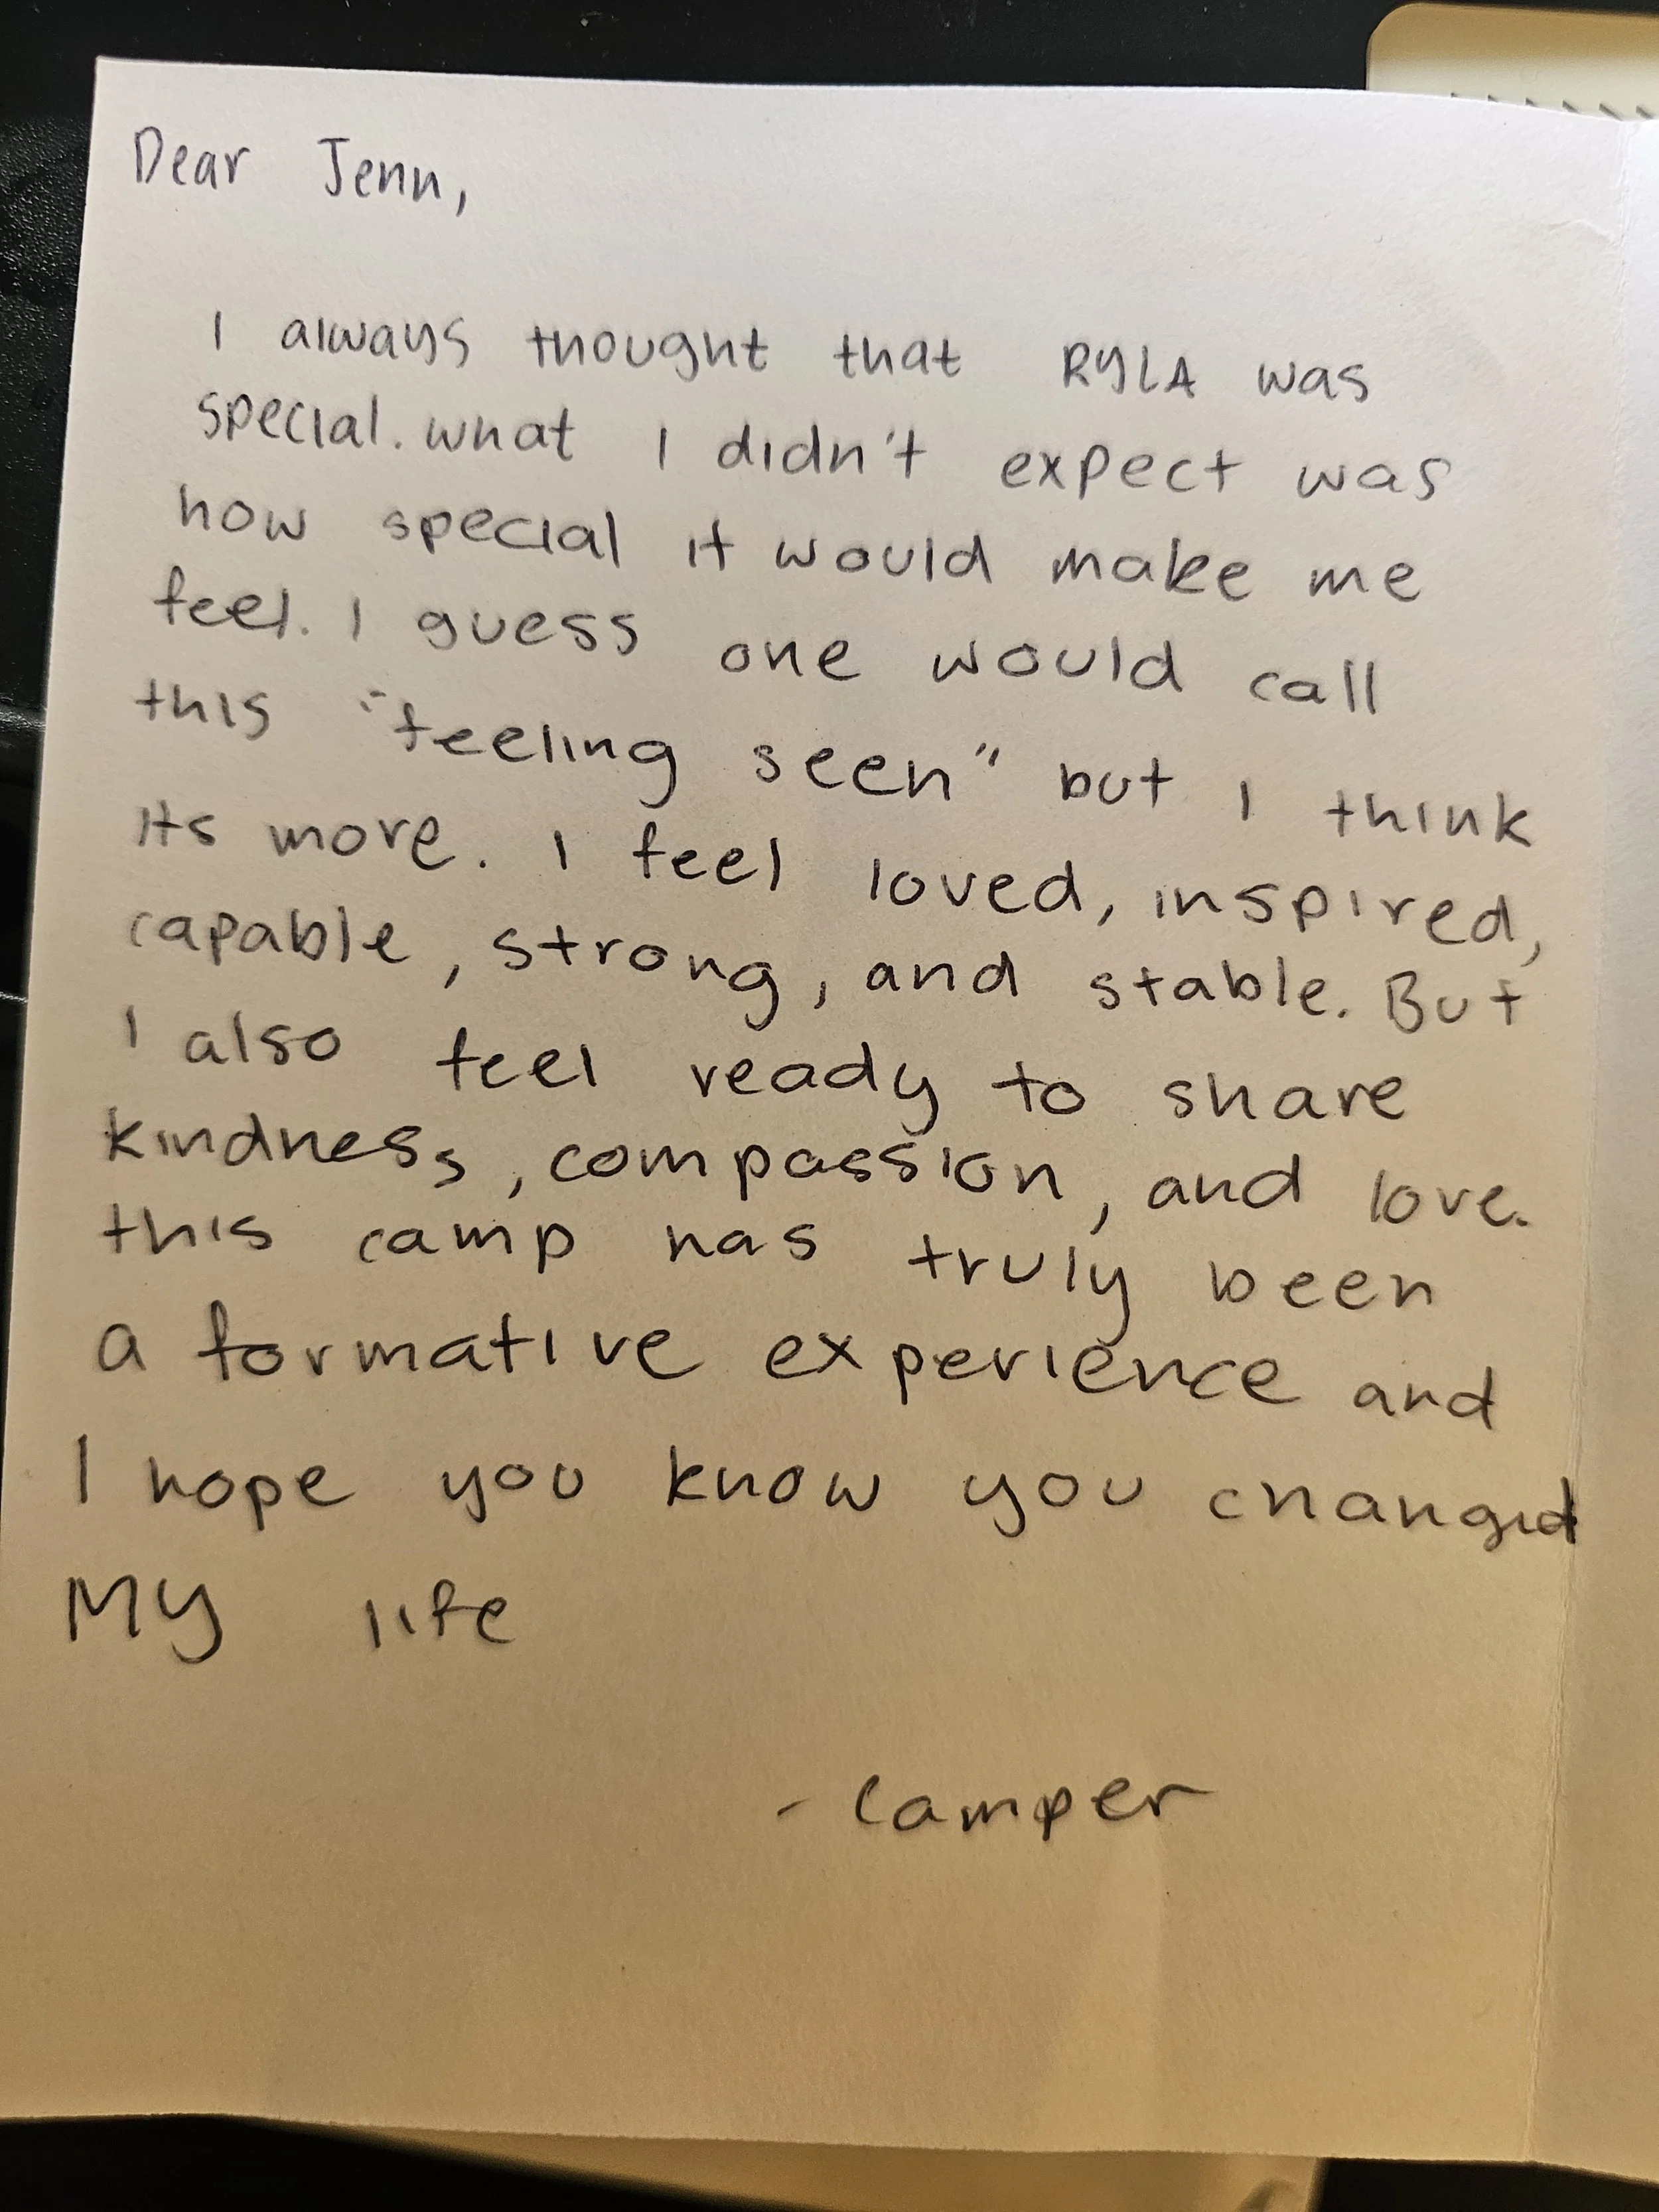 Dear Jenn,
I always thought that RYLA was
special. what I didn't expect was
how special it would make me
feel. I guess one would call
this "feeling seen" but I think
its more. I feel loved, inspired,
capable, strong, and stable. But
I also feel ready to share
kindness, compassion, and love.
this camp has truly been
a formative experience and
I hope you know you changed
My life
- Camper